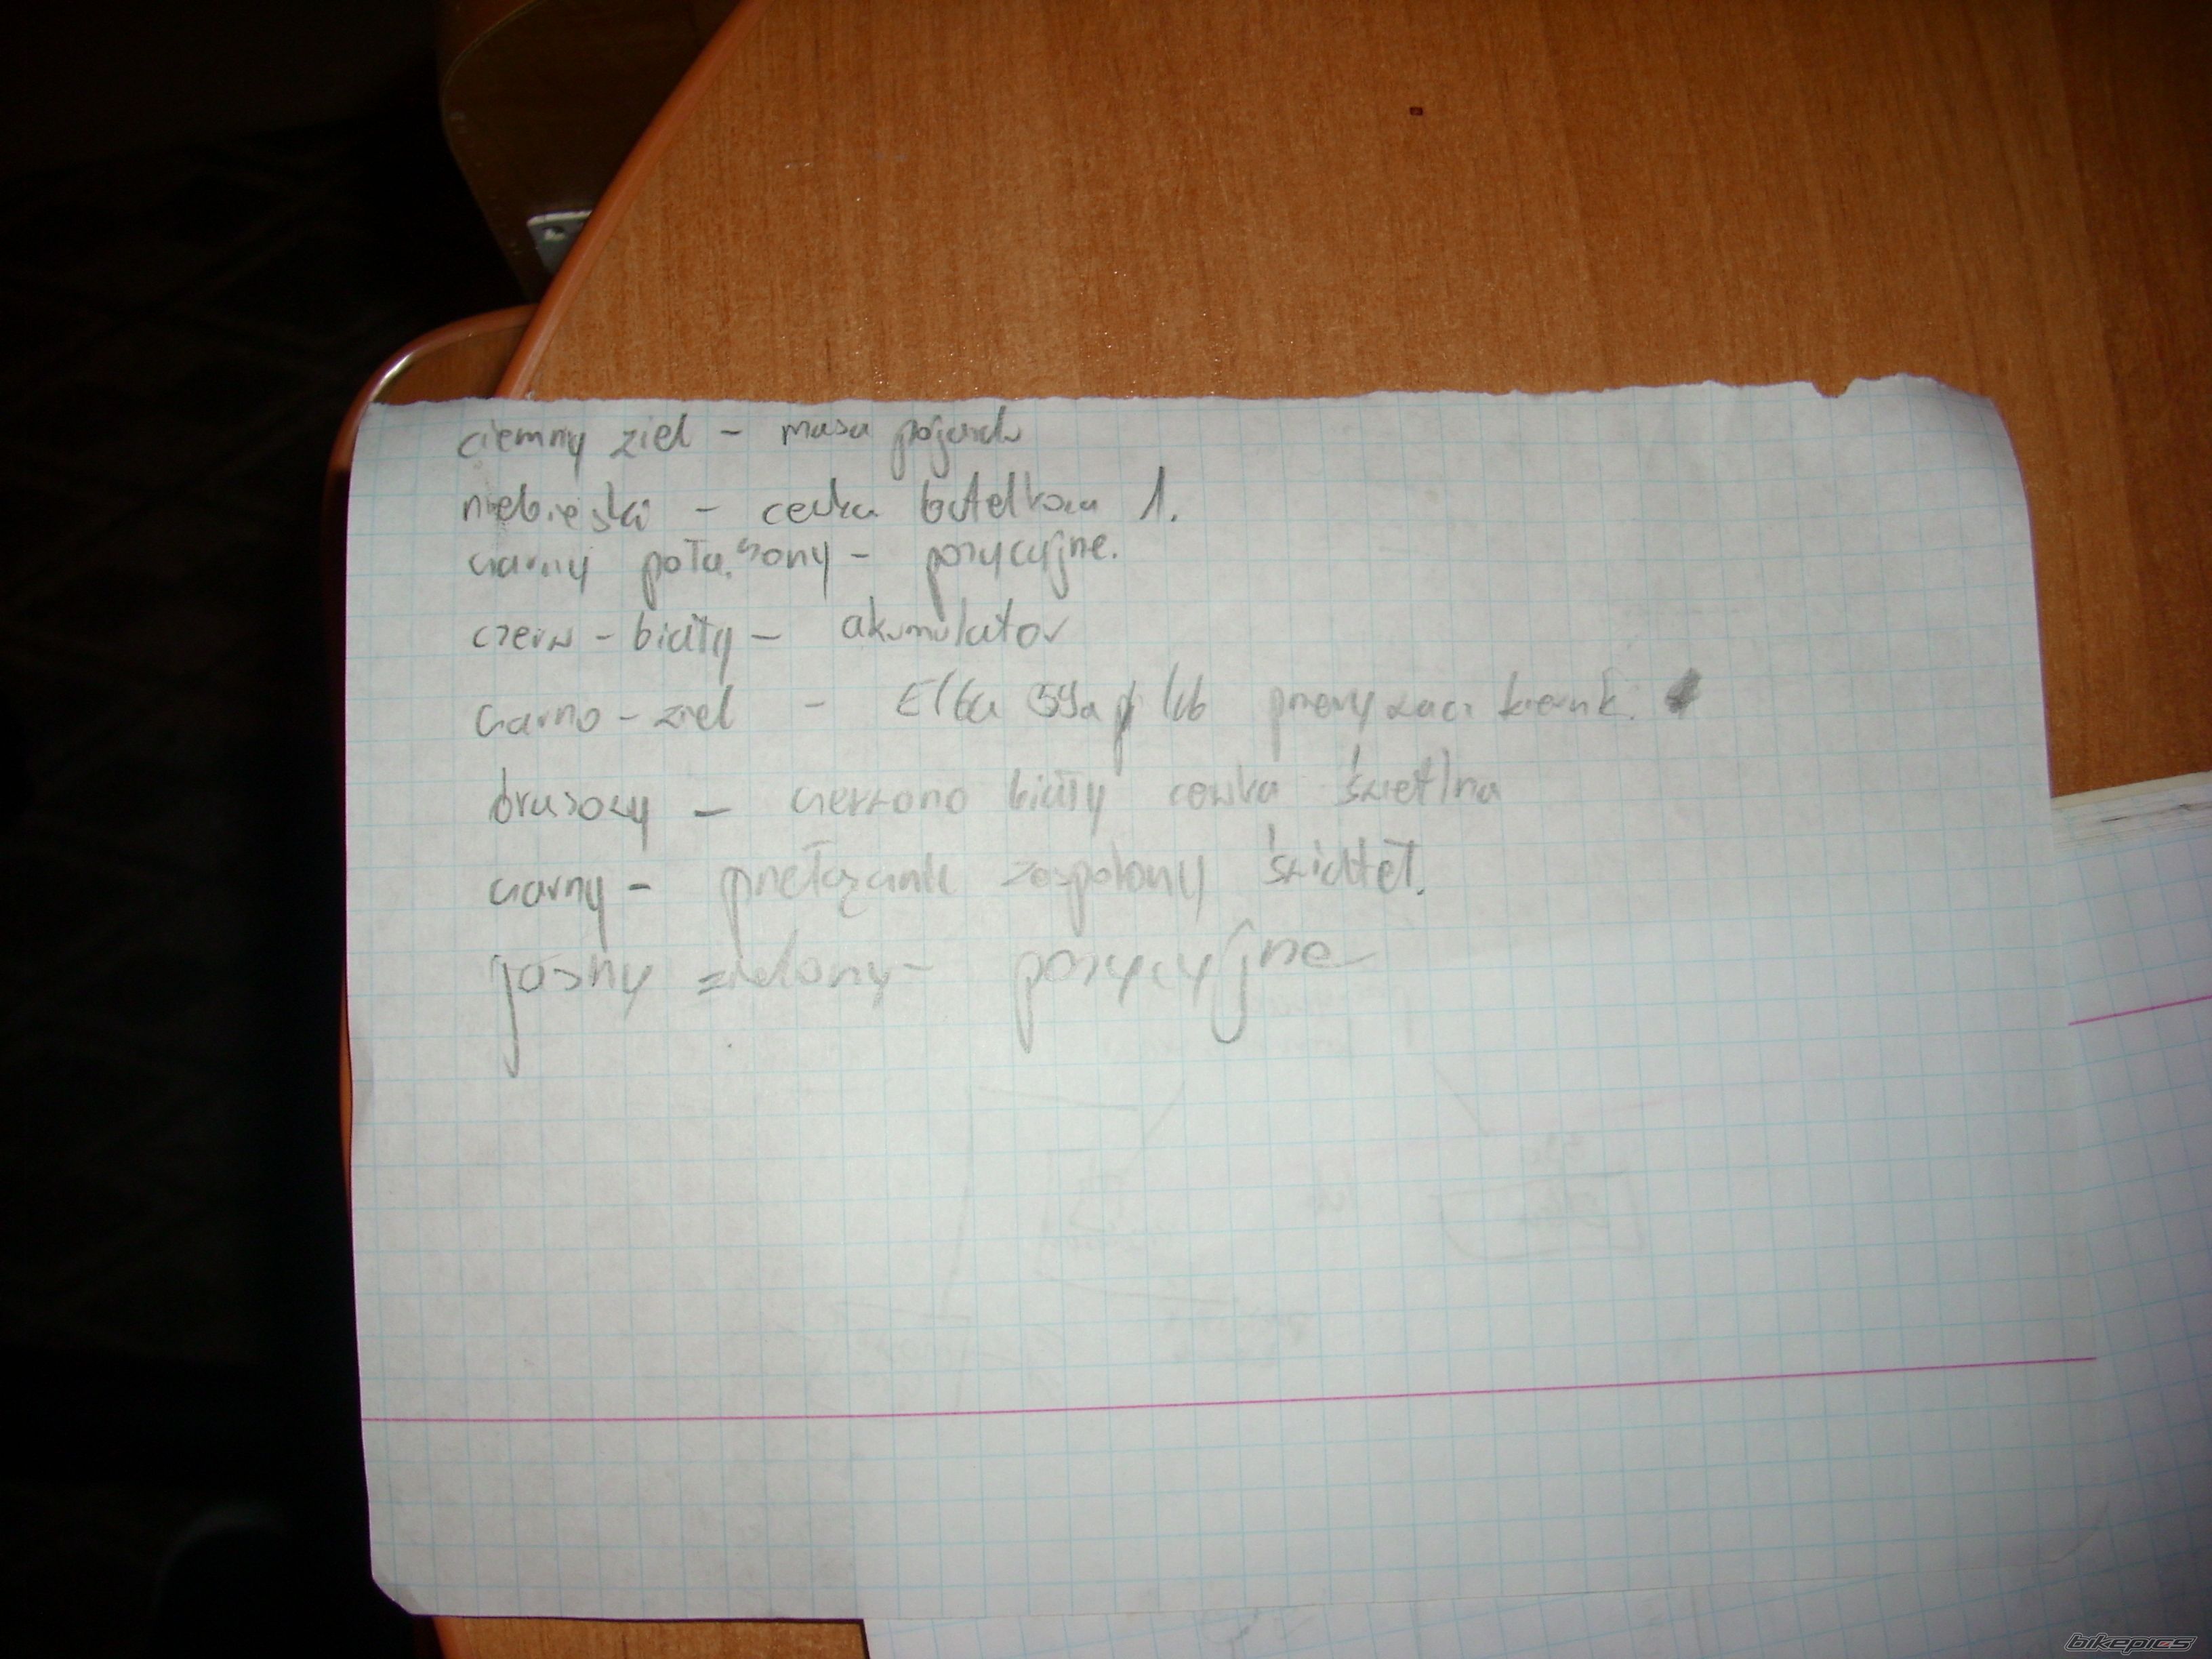 ciemny ziel - masa pojazdu
niebieski - cewka butelkowa 1.
czarny połączony - pozycyjne.
czerw - biały - akumulator
czarno - ziel - Elba 59a lub kierunk.
brązowy - czerwono biały cewka świetlna
czarny - przełącznik zespolony świateł.
jasny zielony - pozycyjne
bikepics